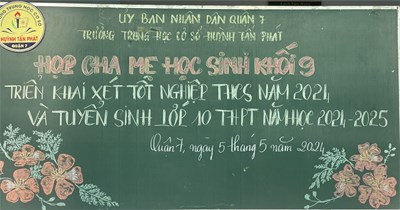 ỦY BAN NHÂN DÂN QUẬN 7
TRƯỜNG TRUNG HỌC CƠ SỞ HUỲNH TẤN PHÁT
HUỲNH TẤN PHÁT
QUẬN 7
HỌP CHA MẸ HỌC SINH KHỐI 9
TRIỂN KHAI XÉT TỐT NGHIỆP THCS NĂM 2024
VÀ TUYỂN SINH LỚP 10 THPT NĂM HỌC 2024-2025
Quận 7, ngày 5 tháng 5 năm 2024